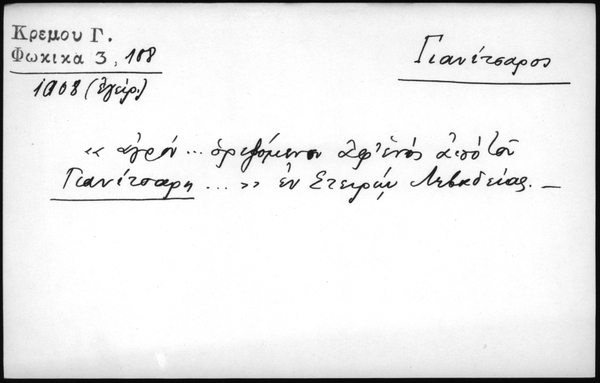 Κρεμου Γ.
Φωκικα 3, 108
1908 (ἔγγρ.)
Γιανίτσαρος
«ἀγρόν... ὁριζόμενον ἀφ' ἑνός ἀπό τοῦ
Γιανίτσαρη...» ἐν Στειρίῳ Λεβαδείας.—